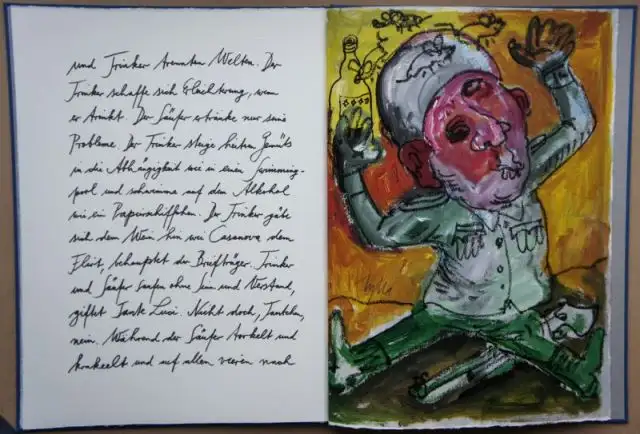 und Trinker trennten Welten. Der
Trinker schaffe sich Erleichterung, wenn
er trinkt. Der Säufer ertränke nur seine
Probleme. Der Trinker steige heitren Gemüts
in die Abhängigkeit wie in einen Swimming-
pool und schwimme auf dem Alkohol
wie ein Papierschiffchen. Der Trinker gäbe
sich dem Wein hin wie Casanova dem
Flirt, behauptet der Briefträger. Trinker
und Säufer saufen ohne Sinn und Verstand,
giftet Tante Luci. Nicht doch, Tantchen,
nein. Während der Säufer torkelt und
krakeelt und auf allen vieren nach